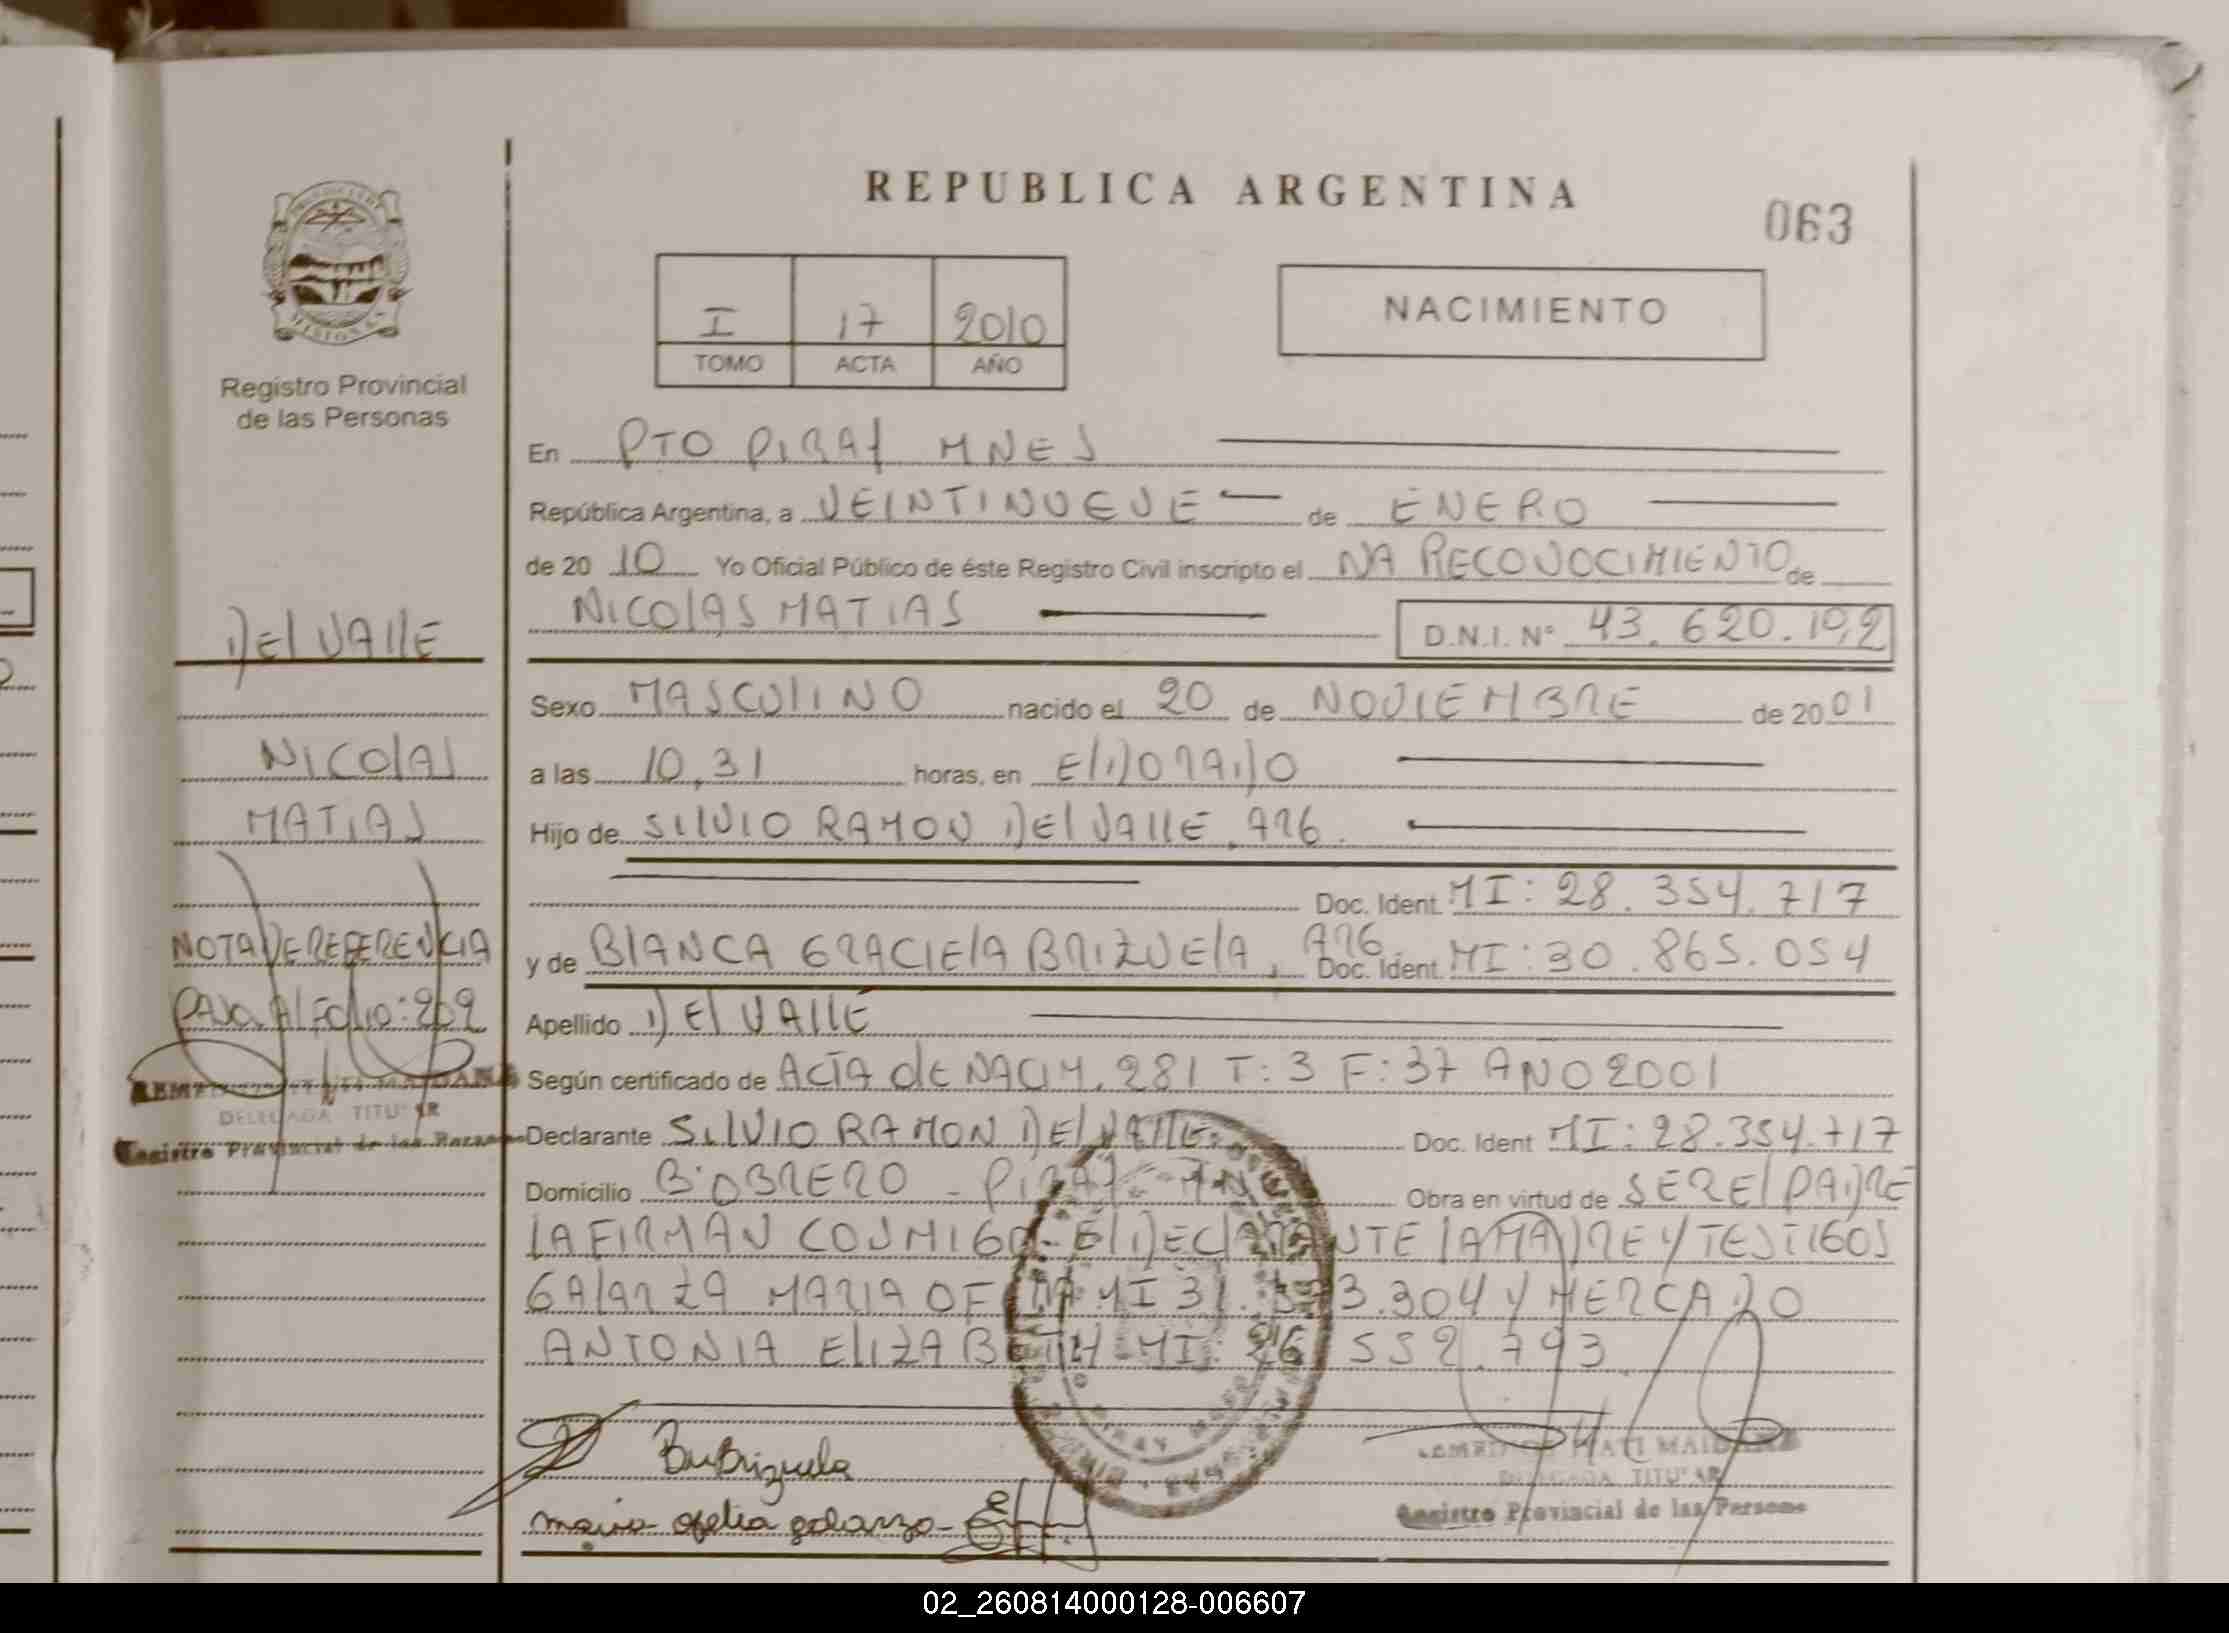 REPUBLICA ARGENTINA
063
I 17 2010
TOMO ACTA AÑO
NACIMIENTO
Registro Provincial
de las Personas
En PTO PIRAY MNES
República Argentina, a VEINTINUEVE de ENERO
de 20 10 Yo Oficial Público de éste Registro Civil inscripto el NA RECONOCIMIENTO de
NICOLAS MATIAS D.N.I. Nº 43.620.102
Sexo MASCULINO nacido el 20 de NOVIEMBRE de 20 01
a las 10,31 horas, en ELDORADO
Hijo de SILVIO RAMON DEL VALLE, ARG.
Doc. Ident. MI: 28.354.717
y de BLANCA GRACIELA BRIZUELA, ARG. Doc. Ident. MI: 30.865.054
Apellido DEL VALLE
Según certificado de ACTA de NACIM. 281 T: 3 F: 37 ANO 2001
Declarante SILVIO RAMON DEL VALLE. Doc. Ident MI: 28.354.717
Domicilio Bº OBRERO - PIRAY - MNES Obra en virtud de SER EL PADRE
LA FIRMAN CONMIGO - El DECLARANTE LA MADRE Y TESTIGOS
GALARZA MARIA OFELIA MI 31. 3.304 Y MERCADO
ANTONIA ELIZABETH MI: 26.552.793
DEL VALLE
NICOLAS
MATIAS
NOTA DE REFERENCIA
PASA Al Folio: 202
MAIDANA
DELEGADA TITULAR
Registro Provincial de las Personas
Brizuela
maria ofelia galarza
MAIDANA
DELEGADA TITULAR
Registro Provincial de las Persona
02_260814000128-006607